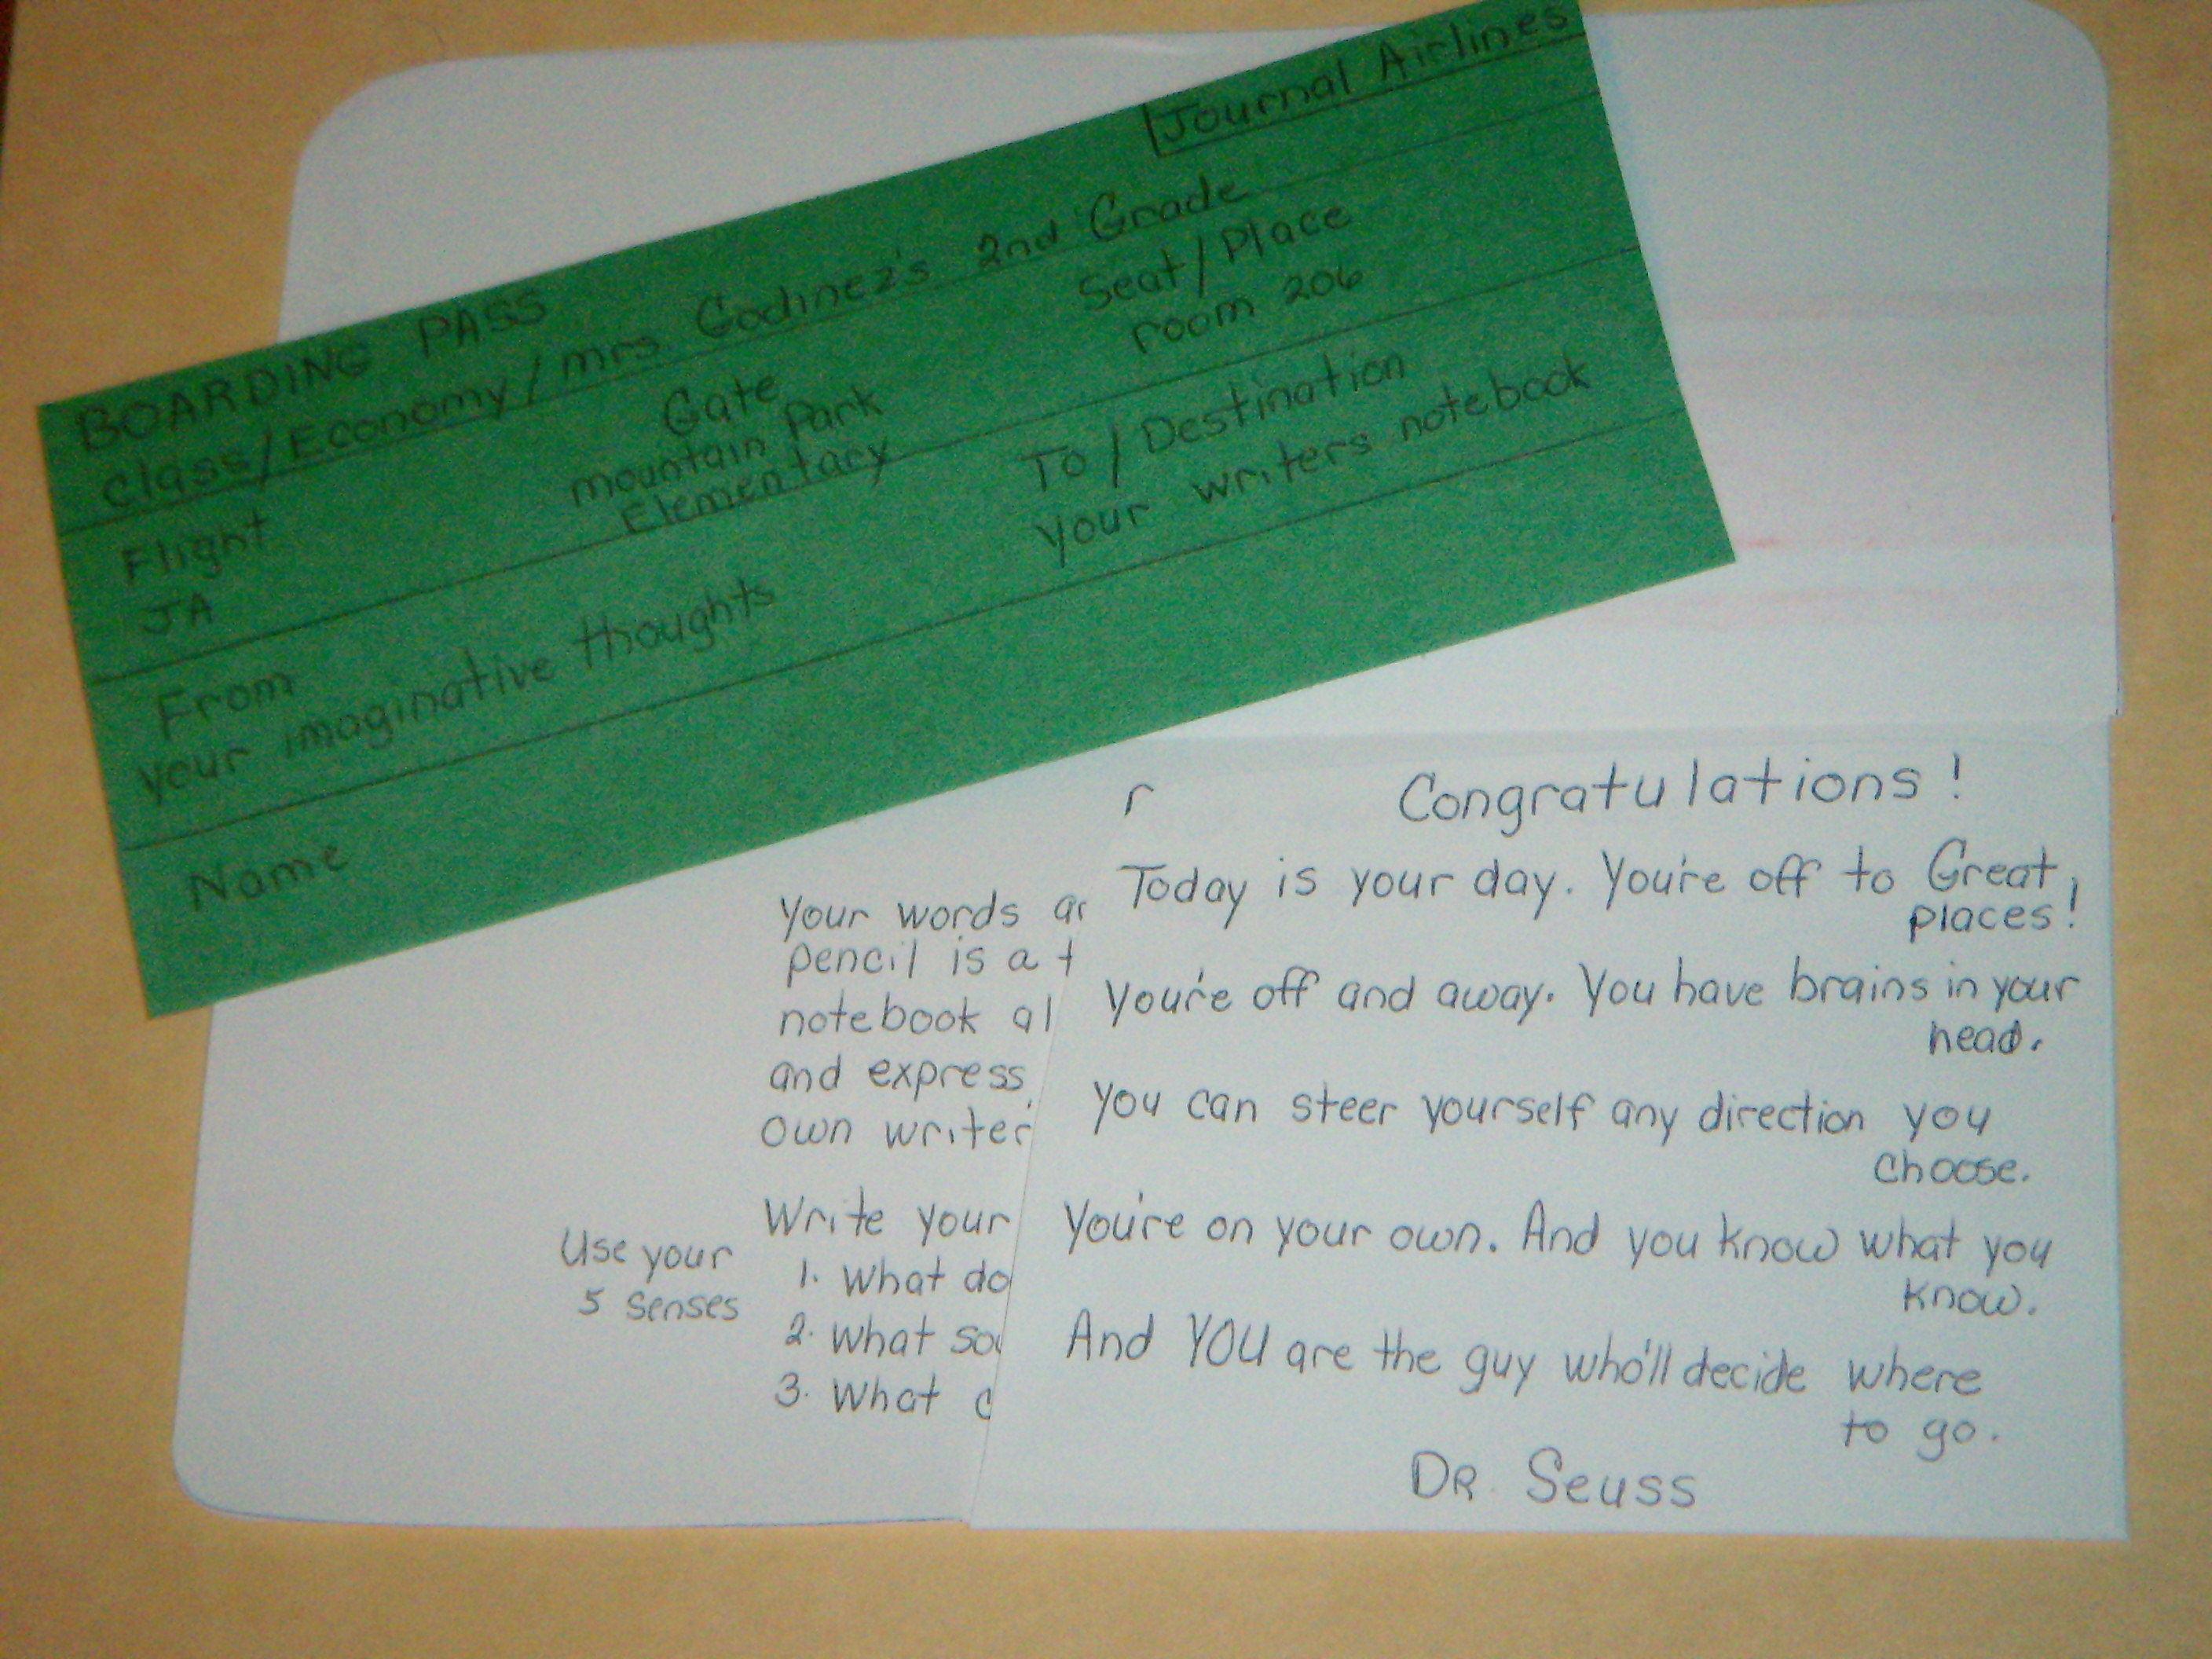 Journal Airlines
BOARDING PASS
Class/Economy/mrs Godinez's 2nd Grade
Flight
JA
Gate
mountain Park
Elementary
Seat/Place
room 206
From
your imaginative thoughts
To/Destination
your writers notebook
Name
Your words
pencil is a
notebook
and express
own
Write your
Use your
5 senses
1. What do
2. What
3. What
Congratulations!
Today is your day. You're off to Great
places!
You're off and away. You have brains in your
head.
You can steer yourself any direction you
choose.
You're on your own. And you know what you
know.
And YOU are the guy who'll decide where
to go.
DR. Seuss